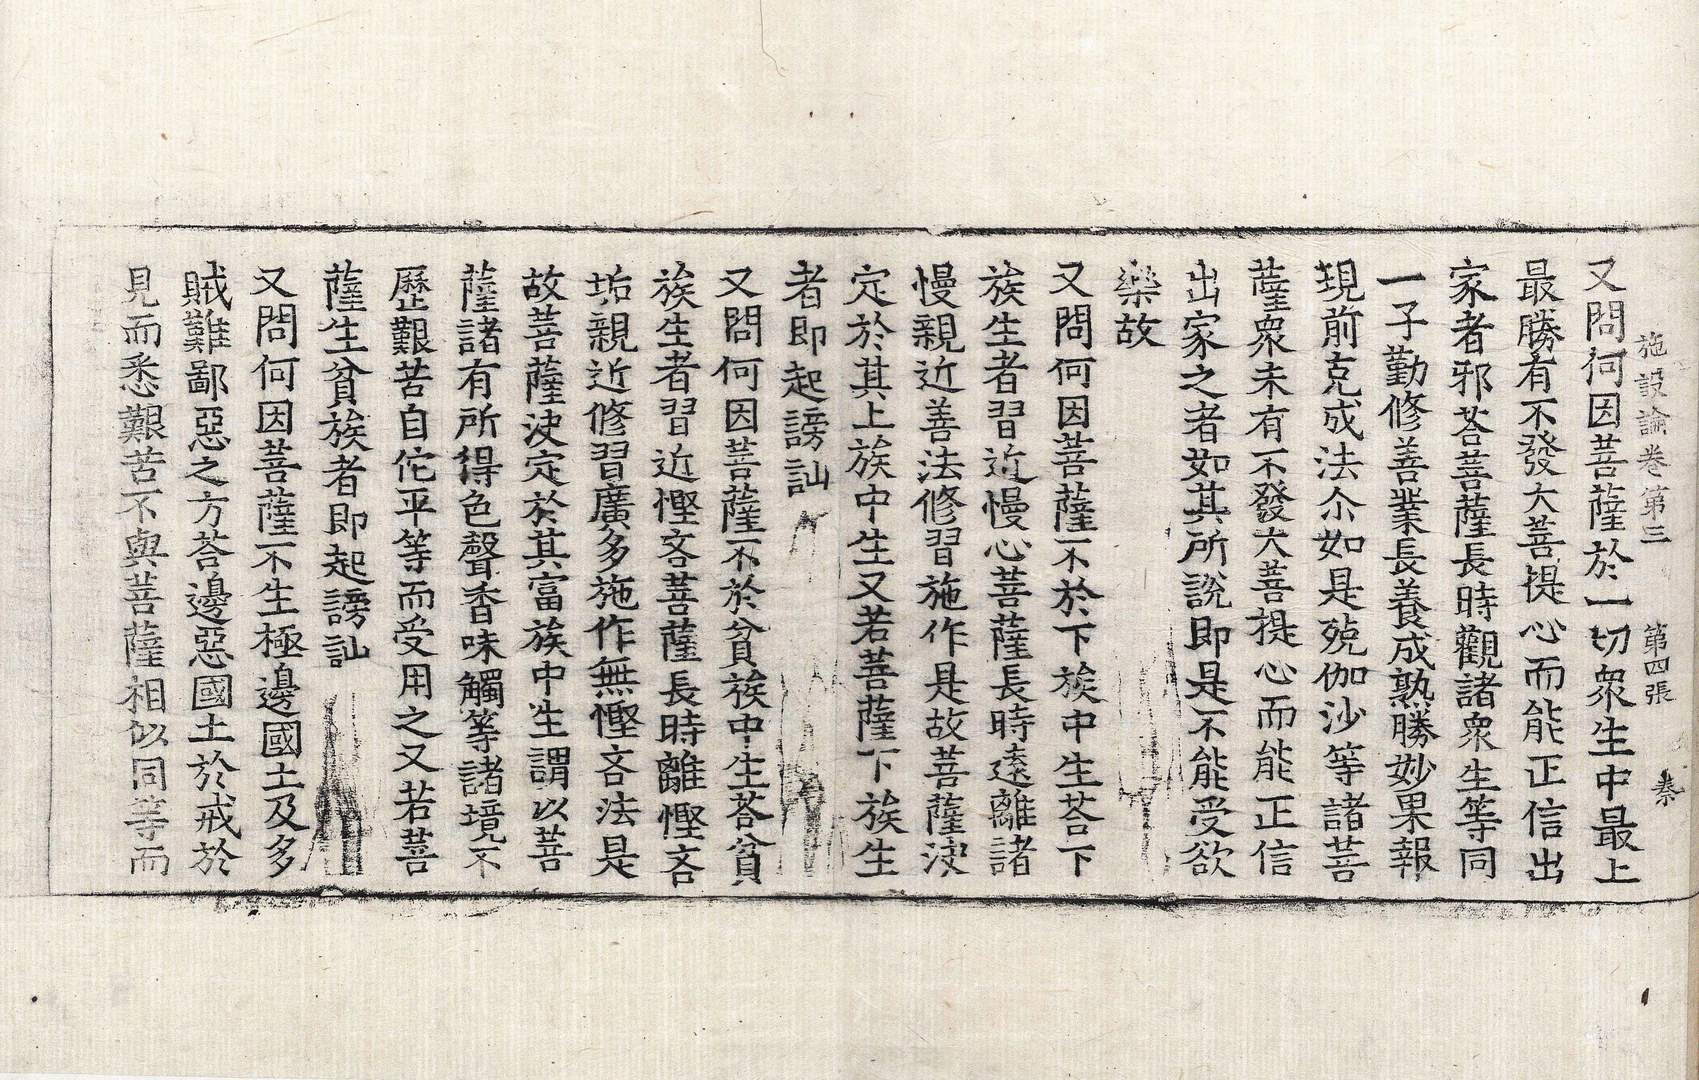 施設論卷第三 第四張 㮈
又問何因菩薩於一切衆生中最上
最勝有不發大菩提心而能正信出
家者邪荅菩薩長時觀諸衆生等同
一子勤修善業長養成熟勝妙果報
現前克成法尒如是殑伽沙等諸菩
薩衆未有不發大菩提心而能正信
出家之者如其所說即是不能受欲
樂故
又問何因菩薩不於下族中生荅下
族生者習近慢心菩薩長時遠離諸
慢親近善法修習施作是故菩薩決
定於其上族中生又若菩薩下族生
者即起謗訕
又問何因菩薩不於貧族中生荅貧
族生者習近慳吝菩薩長時離慳吝
垢親近修習廣多施作無慳吝法是
故菩薩決定於其富族中生謂以菩
薩諸有所得色聲香味觸等諸境不
歷艱苦自佗平等而受用之又若菩
薩生貧族者即起謗訕
又問何因菩薩不生極邊國土及多
賊難鄙惡之方荅邊惡國土於戒於
見而悉艱苦不與菩薩相似同等而